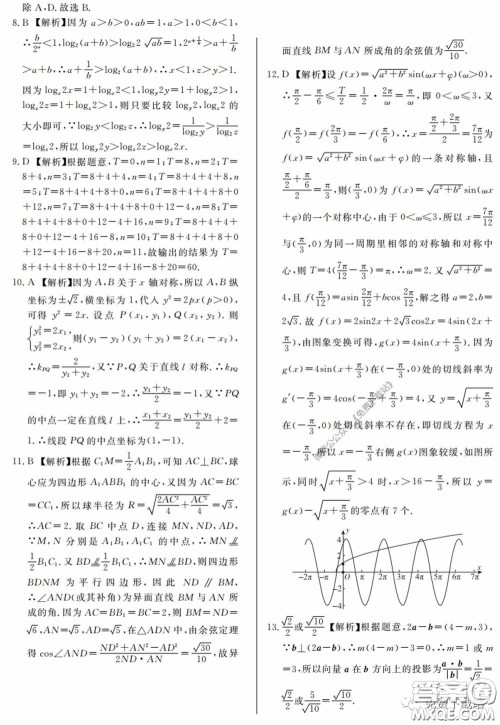 除 A,D.故选 B.
8. B 【解析】因为 a>b>0,ab=1,a>1,0<b<1,
∴b/2^a<1,log₂(a+b)>log₂2√ab=1,2^(a+1/b)>a+1/b
>a+b,∴a+1/b>log₂(a+b),∴x<1,z>y>1.
因为 log_x2x=1+log_x2<1,log_y2y=1+log_y2>1,
log_z2z=1+log_z2>1,则只要比较 log_y2,log_z2 的
大小即可,∵log₂y<log₂z,∴log_y2=1/log₂y>1/log₂z
=log_z2,所以 log_y2y>log_z2z>log_x2x.
9. D 【解析】根据题意,T=0,n=1;T=8,n=2;T=
8+4,n=3;T=8+4+4,n=4;T=8+4+4+8,n
=5;T=8+4+4+8+0,n=6;T=8+4+4+8+0
+12,n=7;T=8+4+4+8+0+12-4,n=8;T=
8+4+4+8+0+12-4+16,n=9;T=8+4+4+
8+0+12-4+16-8,n=10;T=8+4+4+8+0
+12-4+16-8+20,n=11,故输出的结果为 T=
8+4+4+8+0+12-4+16-8+20=60.
10. A 【解析】因为 A,B 关于 x 轴对称,所以 A,B 纵
坐标为±√2,横坐标为 1,代入 y²=2px(p>0),
可得 y²=2x.设点 P(x₁,y₁),Q(x₂,y₂).则
{y₁²=2x₁, y₂²=2x₂, 则(y₁-y₂)(y₁+y₂)=2(x₁-x₂),∴
k_PQ=2/(y₁+y₂),又∵P,Q 关于直线 l 对称.∴k_PQ
=-1,即 y₁+y₂=-2,∴(y₁+y₂)/2=-1,又∵PQ
的中点一定在直线 l 上,∴(x₁+x₂)/2=(y₁+y₂)/2+2=
1.∴线段 PQ 的中点坐标为(1,-1).
11. B 【解析】根据 C₁M=1/2A₁B₁,可知 AC⊥BC,球
心应为四边形 A₁ABB₁ 的中心,又因为 AC=BC
=CC₁,所以球半径为 R=√(2AC²/4+AC²/4)=√3,
∴AC=2.取 BC 中点 D,连接 MN,ND,AD,
∵M,N 分别是 A₁B₁,A₁C₁ 的中点,∴MN∥
1/2B₁C₁.又 BD∥1/2B₁C₁,∴MN∥BD,则四边形
BDNM 为平行四边形,因此 ND∥BM,
∴∠AND(或其补角)为异面直线 BM 与 AN 所
成的角.因为 AC=BB₁=BC=2,则 BM=ND=
√6,AN=√5,AD=√5,在△ADN 中,由余弦定理
得 cos∠AND=(ND²+AN²-AD²)/(2ND·AN)=√30/10,故异
面直线 BM 与 AN 所成角的余弦值为√30/10.
12. D 【解析】设 f(x)=√(a²+b²)sin(ωx+φ)(ω>0),
∴π/2-π/6≤T/2=1/2·2π/ω=π/ω,即 0<ω≤3,又
f(π/2)=f(2π/3)=-f(π/6),∴x=(π/2+2π/3)/2=7π/12
为 f(x)=√(a²+b²)sin(ωx+φ)的一条对称轴,且
(π/2+π/6)/2=π/3,则(π/3,0)为 f(x)=√(a²+b²)sin(ωx+
φ)的一个对称中心,由于 0<ω≤3,所以 x=7π/12
与(π/3,0)为同一周期里相邻的对称轴和对称中
心,则 T=4(7π/12-π/3)=π,∴ω=2.又√(a²+b²)=
4,且 f(π/12)=asinπ/6+bcosπ/6,解之得 a=2,b=
2√3.故 f(x)=2sin2x+2√3cos2x=4sin(2x+
π/3),由图象变换可得,g(x)=4sin(x+π/3).因为
g(x)=4sin(x+π/3)在(-π/3,0)处的切线斜率为
g′(-π/3)=4cos(-π/3+π/3)=4,又 y=√(x+π/3)
在(-π/3,0)处切线斜率不存在,即切线方程为 x
=-π/3.所以 x=-π/3右侧 g(x)图象较缓,如图所
示,同时√(x+π/3)>4 时,x>16-π/3,所以 y=
g(x)-√(x+π/3)的零点有 7 个.
y
4
-2π -π 0 π 2π 3π 4π 5π 6π 7π x
13. √2/2或√10/2 【解析】根据题意,2a-b=(4-m,3),
∵b⊥(2a-b),∴m(4-m)-3=0,∴m=1 或 m
=3,所以向量 a 在 b 方向上的投影为a·b/|b|=
√2/2或5/√10=√10/2.